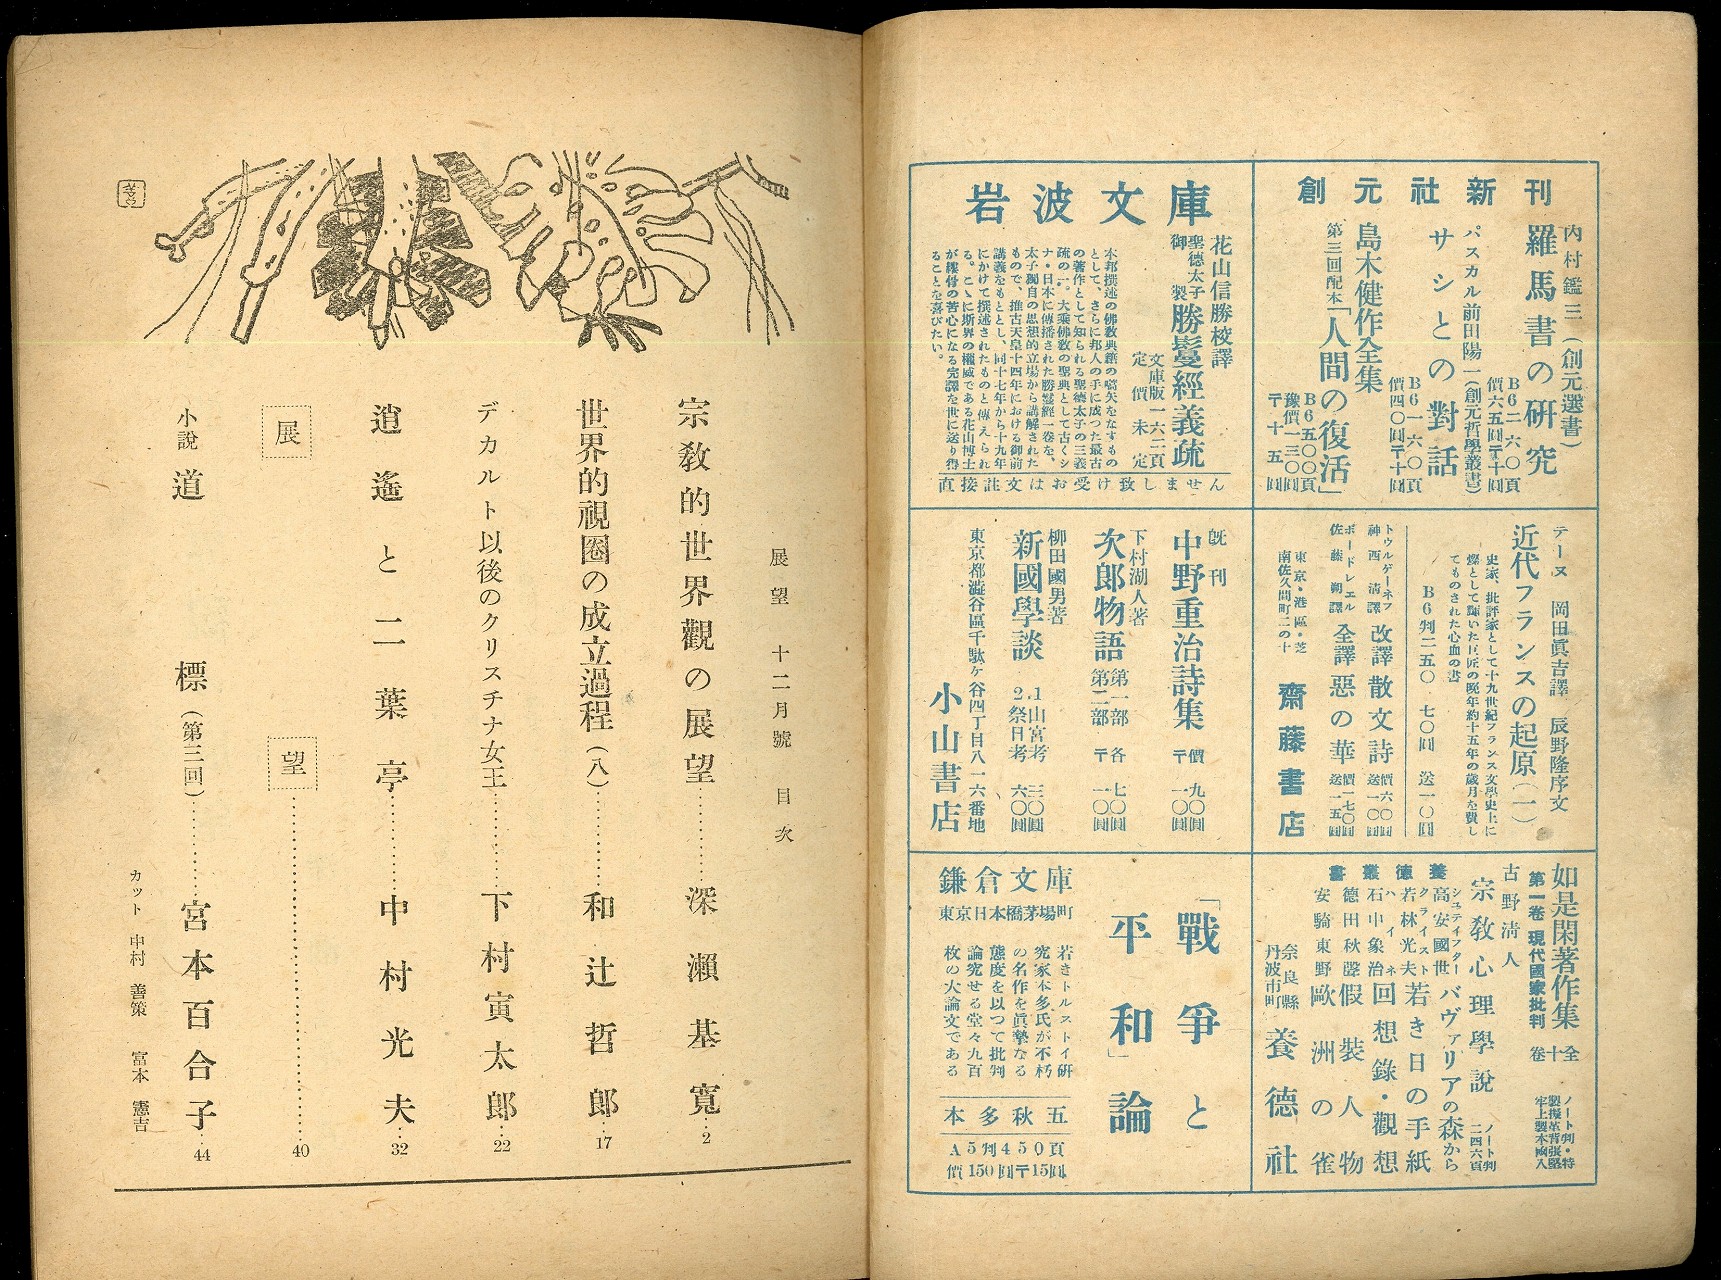 創元社新刊
内村鑑三（創元選書）
羅馬書の研究
B6二六〇頁
價六五圓〒十圓
パスカル 前田陽一（創元哲學叢書）
サシとの對話
B6一六〇頁
價四〇圓〒十圓
島木健作全集
第三回配本「人間の復活」
B6五〇〇頁
豫價一三〇圓
〒十五圓
岩波文庫
花山信勝校譯
聖德太子
御製
勝鬘經義疏
文庫版一六二頁
定價未定
本邦撰述の佛敎典籍の嚆矢をなすもの
として、さらに邦人の手に成つた最古
の著作として知られる聖德太子の三義
疏の一。大乘佛敎の聖典として古くシ
ナ・日本に傳播された勝鬘經一卷を、
太子獨自の思想的立場から講解された
もので、推古天皇十四年における御前
講義をもととし、同十七年から十九年
にかけて撰述されたものと傳えられ
る。こゝに斯界の權威である花山博士
が縷骨の苦心になる完譯を世に送り得
ることを喜びたい。
直接註文はお受け致しません
テーヌ 岡田眞吉譯 辰野隆序文
近代フランスの起原（一）
史家、批評家として十九世紀フランス文學史上に
燦として輝いた巨匠の晚年約十五年の歲月を費し
てものされた心血の書
B6判二五〇 七〇圓 送一〇圓
トウルゲーネフ
神西淸譯 改譯散文詩
價六〇圓
送一〇圓
ボードレエル
佐藤朔譯 全譯惡の華
價一七〇圓
送一五圓
東京・港區・芝
南佐久間町二の十
齋藤書店
既刊
中野重治詩集
價九〇圓
〒一〇圓
下村湖人著
次郎物語
第一部
第二部
各七〇圓
〒一〇圓
柳田國男著
新國學談
1.山宮考 三〇圓
2.祭日考 六〇圓
東京都澁谷區千駄ケ谷四丁目八一六番地
小山書店
如是閑著作集 全十卷
第一卷 現代國家批判
ノート判・特
製擬革背張堅
牢上製本凾入
古野淸人
宗敎心理學說
ノート判
二四六頁
養德叢書
シュティフター
高安國世 バヴァリアの森から
クライスト
若林光夫 若き日の手紙
ハイネ
石中象治 回想錄・觀想
德田秋聲 假裝人物
安騎東野 歐洲の雀
奈良縣
丹波市町
養德社
「戰爭と
平和」論
鎌倉文庫
東京日本橋茅場町
若きトルストイ硏
究家本多氏が不朽
の名作を眞摯なる
態度を以つて批判
論究せる堂々九百
枚の大論文である
本多秋五
A5判450頁
價150圓〒15圓
展望 十二月號 目次
宗敎的世界觀の展望………深瀨基寬…2
世界的視圈の成立過程（八）………和辻哲郎…17
デカルト以後のクリスチナ女王………下村寅太郎…22
逍遙と二葉亭………中村光夫…32
展望………40
小說 道標（第三回）………宮本百合子…44
カット 中村善策 富本憲吉